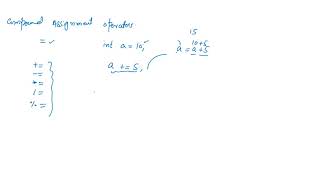 Compound Assignment operators
= ✓
int a = 10;
15
10+5
a = a + 5
+=
a += 5,
-=
*=
/=
%=